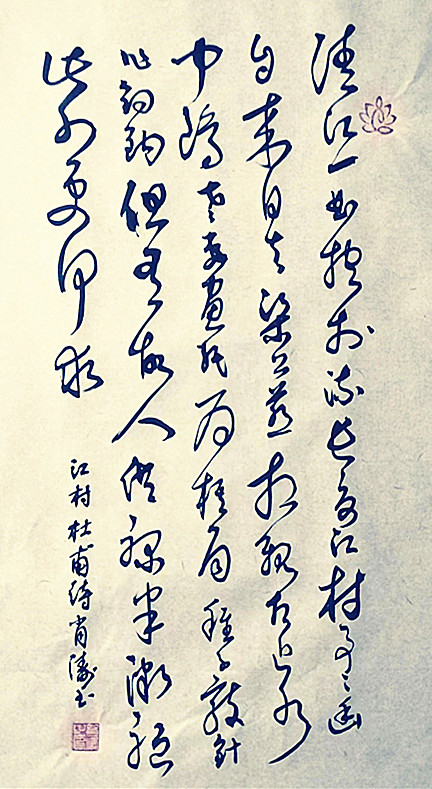 清江一曲抱村流长夏江村事事幽
自来自去梁上燕相親相近水
中鸥老妻畫紙为棋局稚子敲針
作钓鈎但有故人供禄米微躯
此外更何求
江村杜甫诗肖涛书